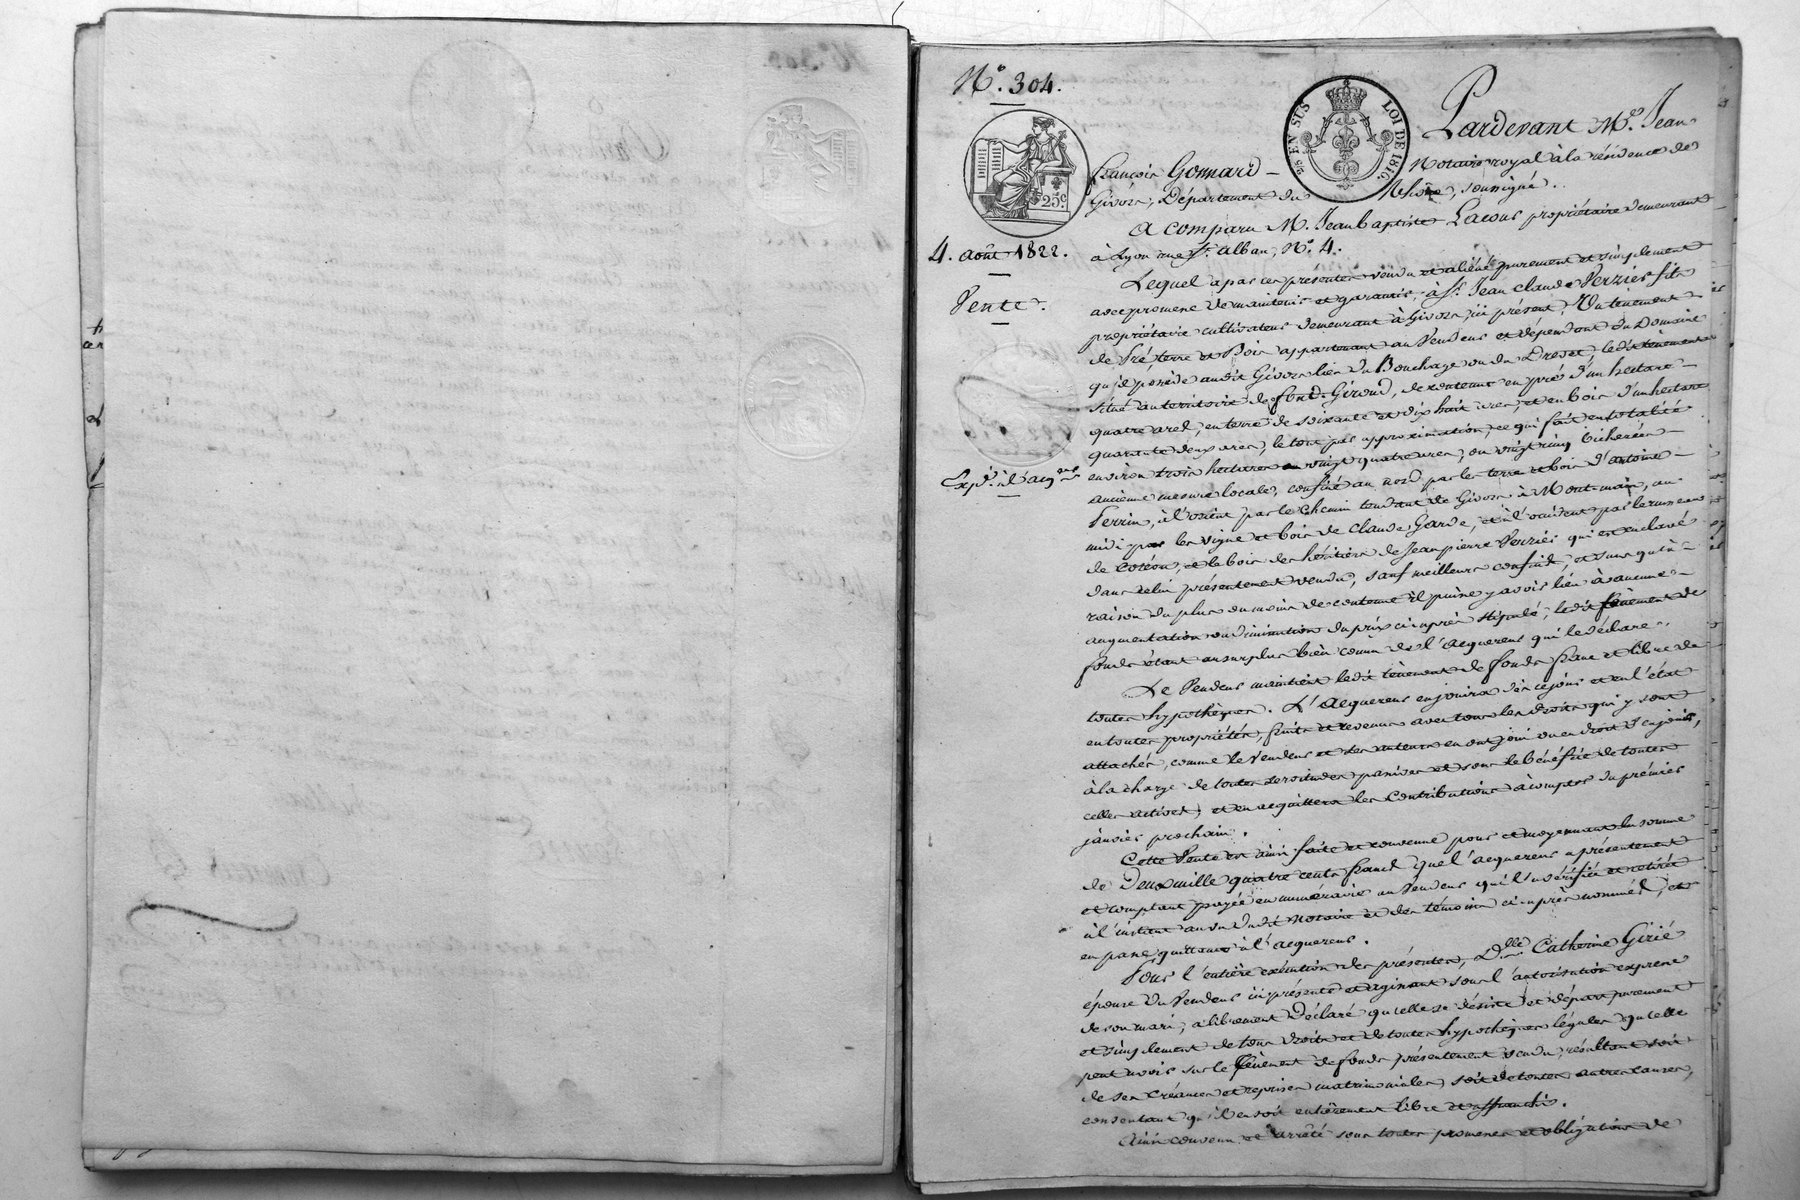 N.° 304.
25 EN SUS LOI DE 1816
25.c
4. août 1822.
Vente.
Expé. à l'acqéreur
Pardevant M.e Jean
françois Gonnard – Notaire royal à la résidence de
Givors, Département du Rhône, soussigné..
A comparu M. Jean baptiste Lacour propriétaire demeurant
à Lyon rue St. alban, N.° 4.
Lequel a par ces présentes vendu et aliéné purement et simplement
avec promesse de maintenir et garantir, à Sr. Jean claude Verzier fils
propriétaire cultivateur demeurant à Givors, ici présent, Un tenement
de Pré, terre et Bois appartenant au Vendeur et dépendant du Domaine
qu'il possède audit Givors lieu du Bouchage ou du Drevet, ledit tenement
situé au territoire de font-Giroud, de contenue en pré d'un hectare –
quatre ares, en terre de soixante et dix huit ares, et en bois d'un hectare
quarante deux ares, le tout par approximation, ce qui fait en totalité
environ trois hectares vingt quatre ares, ou vingt cinq bicherées –
ancienne mesure locale, confiné au nord par les terre et bois d'antoine –
Perrin, à l'orient par le Chemin tendant de Givors à Mont-main, au
midi par les vigne et bois de Claude Garde, et à l'occident par le ruisseau
de cotéon, et le bois des héritiers de Jean pierre Verzier qui est enclavé
dans celui présentement vendu, sauf meilleurs confins, et sans qu'à –
raison du plus ou moins de contenue il puisse y avoir lieu à aucune –
augmentation ou diminution du prix ci-après stipulé, ledit tènement de
fonds étant au surplus bien connu de l'acquereur qui le déclare.
Le Vendeur maintient ledit tènement de fonds franc et libre de
toutes hypothèques. L'acquereur en jouira dès ce jour et en l'état
en toutes propriétés, fruits et revenus avec tous les droits qui y sont
attachés, comme le Vendeur et ses auteurs en ont joui ou eu droit d'en jouir,
à la charge de toutes servitudes passives et sous le bénéfice de toutes
celles actives, et en acquittera les Contributions à compter du premier
janvier prochain.
Cette Vente est ainsi faite et convenue pour et moyennant la somme
de Deux mille quatre cents francs que l'acquereur a présentement
et comptant payée en numéraire au Vendeur qui l'a vérifiée et retirée
à l'instant au vu dudit Notaire et des témoins ci-après nommés, et
en passe quittance à l'acquereur.
Pour l'entière exécution des présentes, D.lle Catherine Girié
épouse du Vendeur ici présente et agissant sous l'autorisation expresse
de son mari, a librement déclaré qu'elle se désiste et départ purement
et simplement de tous droits et de toutes hypothèques légales qu'elle
peut avoir sur le tènement de fonds présentement vendu, résultant soit
de ses créances et reprises matrimoniales, soit de toutes autres causes,
consentant qu'il en soit entièrement libre et affranchi.
Ainsi convenu et arrêté sous toutes promesses et obligations de